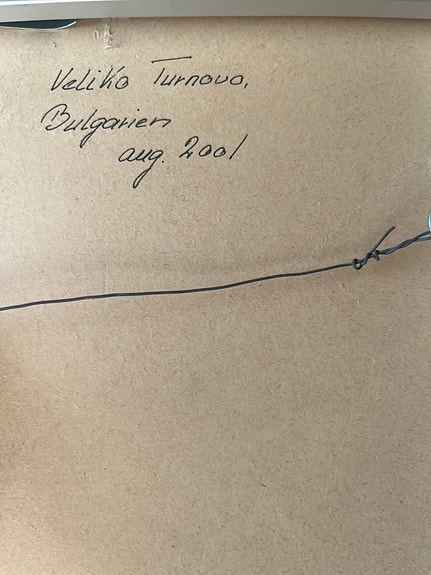 Veliko Turnovo,
Bulgarien
aug. 2001